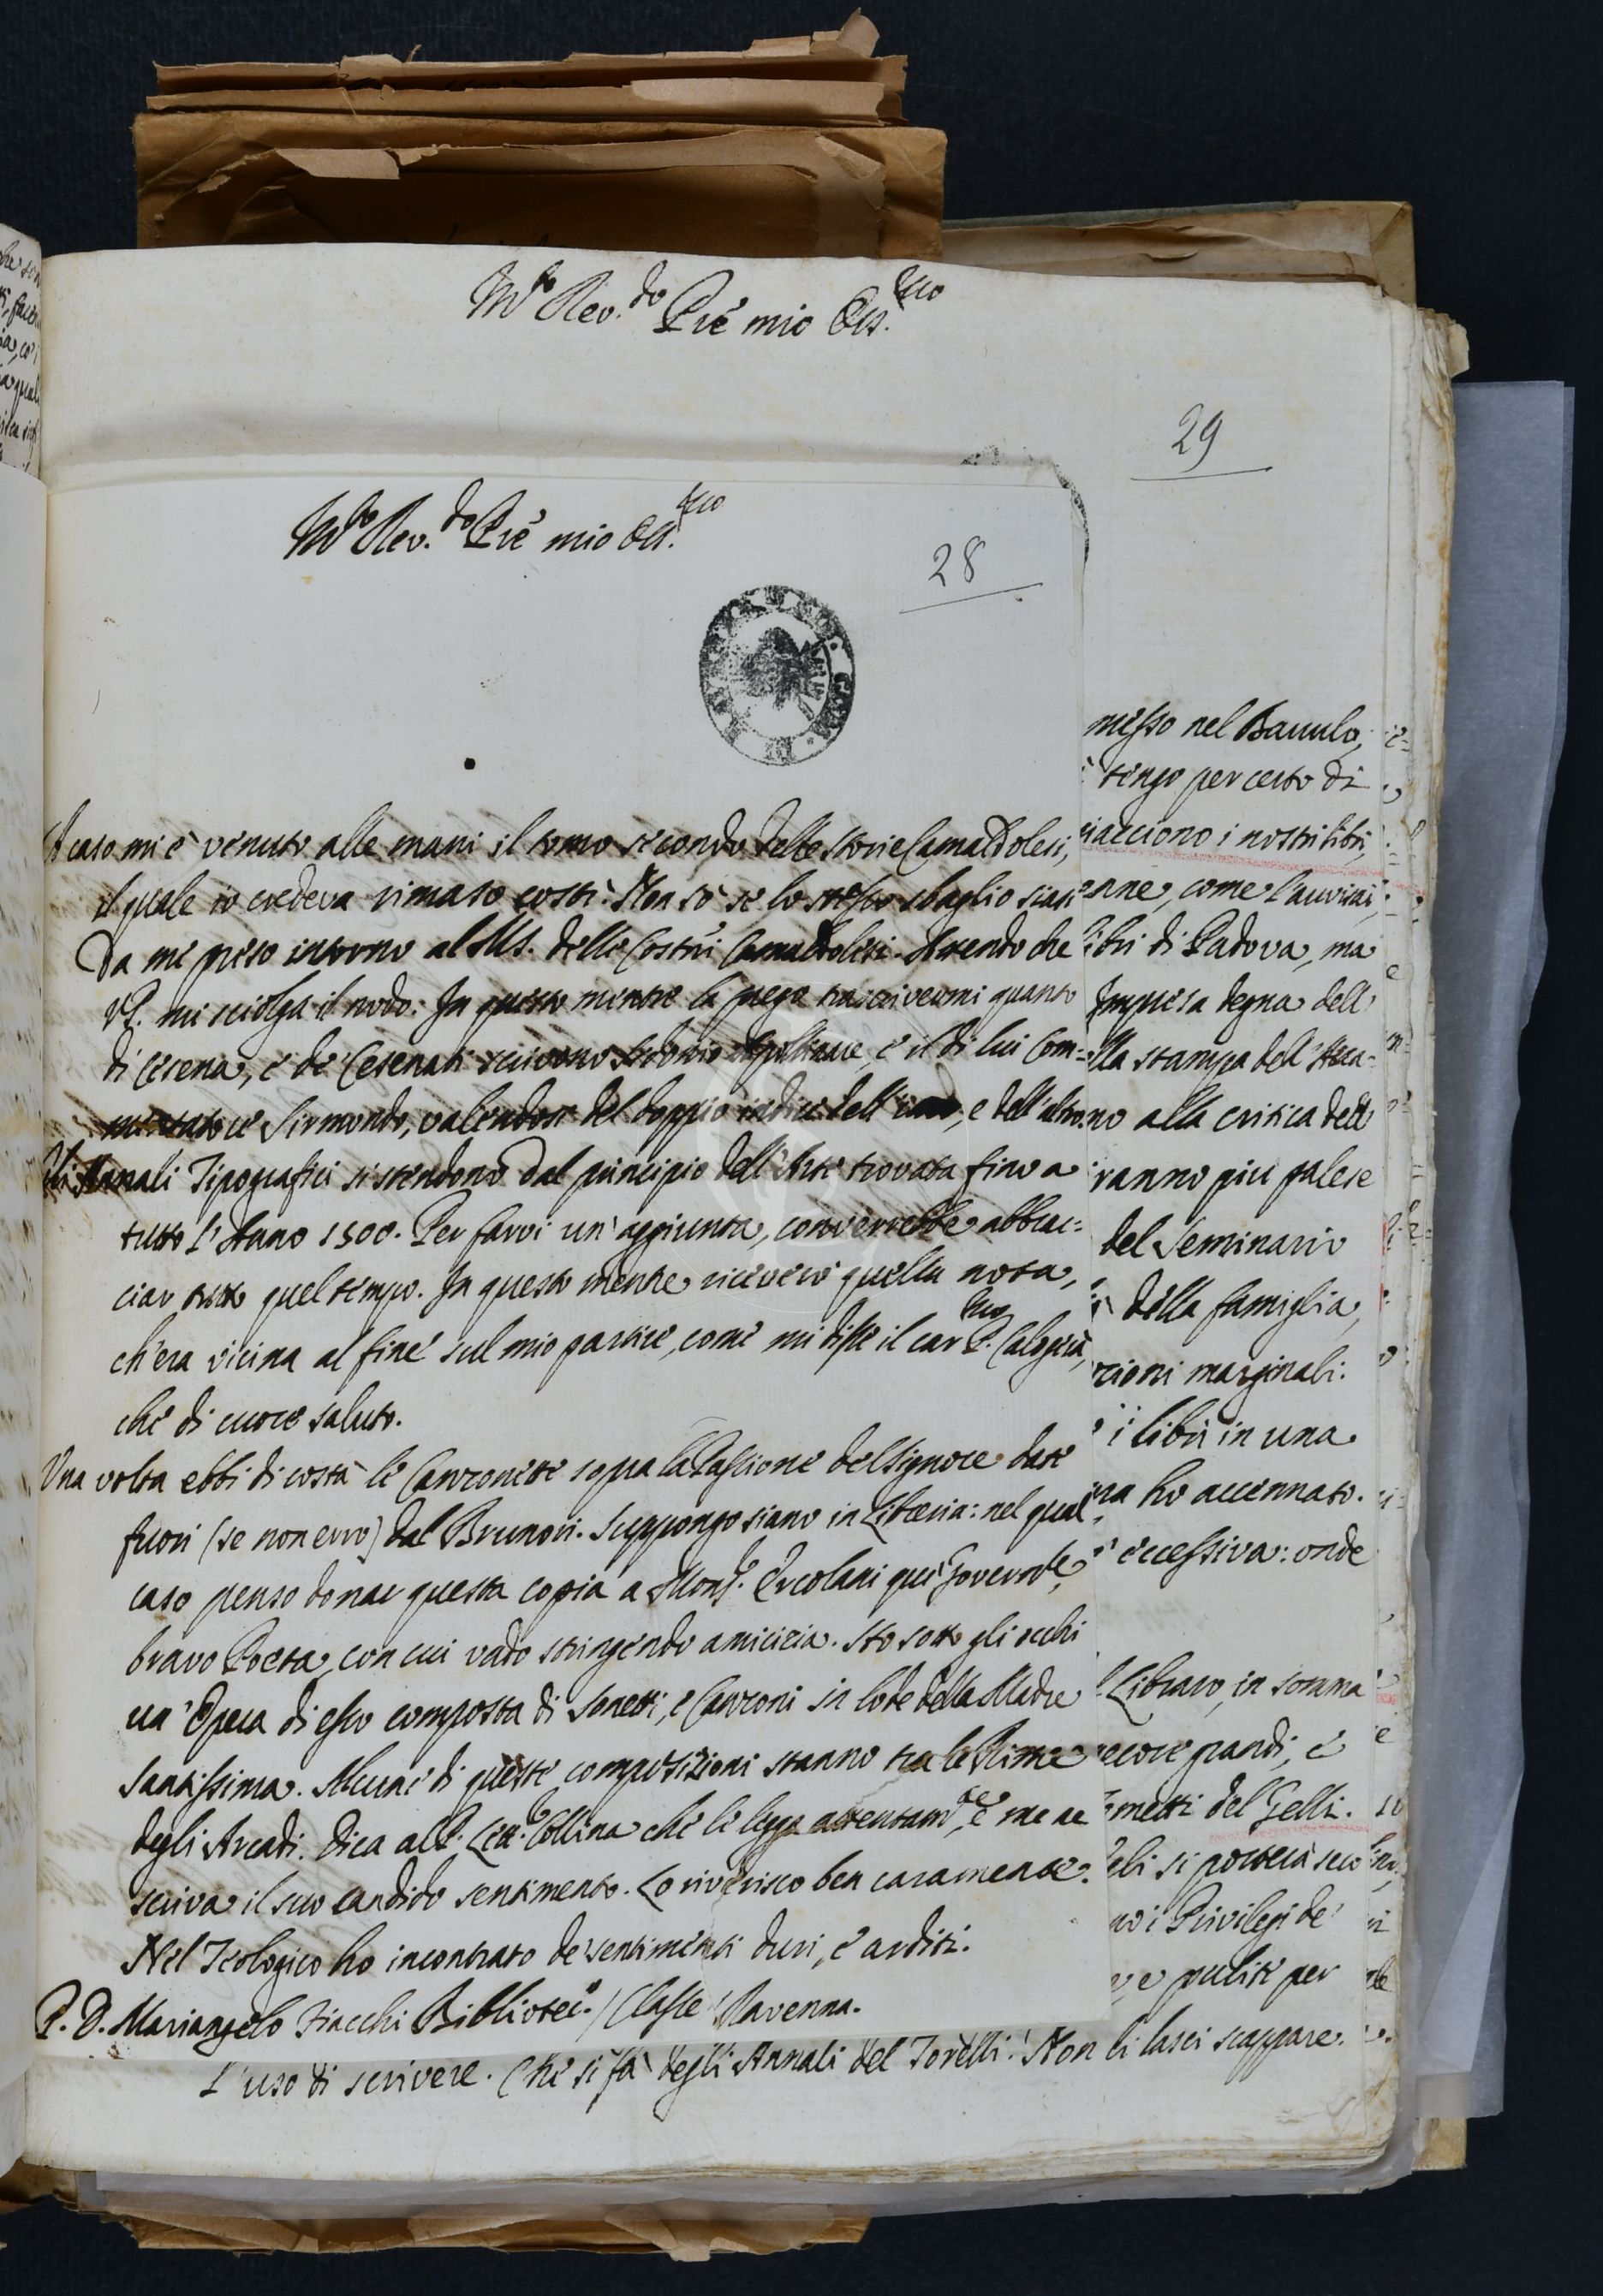 M.to Rev.do Pre mio Oss.mo
29
M.to Rev.do Pre mio Oss.mo
28
A caso mi è venuto alle mani il tomo secondo delle Storie Camaldolesi,
il quale io credeva rimaso costì. Non so se lo stesso sbaglio siasi
da me preso intorno al Ms. delle Costni Camaldolesi. Attendo che
V.P. mi sciolga il nodo. In questo mentre la prego trascrivermi quanto
di Cesena, e de' Cesenati scrivono Sidonio Apollinare, e il di lui Com=
mentatore Sirmondo, valendosi del doppio indice dell'uno, e dell'altro.
Gli Annali Tipografici si stendono dal principio dell'Arte trovata fino a
tutto l'Anno 1500. Per farvi un'aggiunta, converrebbe abbrac=
ciar tutto quel tempo. In questo mentre riceverò quella nota,
ch'era vicina al fine sul mio partire, come mi disse il car.mo P. Calogerà,
che di cuore saluto.
Una volta ebbi di costà le Canzonette sopra la Passione del Signore date
fuori (se non erro) dal Brunori. Suppongo siano in Libreria: nel qual
caso penso donar questa copia a Mons.r Ercolani qui Governre,
bravo Poeta, con cui vado stringendo amicizia. Sto sotto gli occhi
un'Opera di esso composta di Sonetti, e Canzoni in lode della Madre
Santissima. Alcune di queste composizioni stanno tra le Rime
degli Arcadi. Dica al P. Lett.e Collina che le legga attentam.te, e me ne
scriva il suo candido sentimento. Lo riverisco ben caramente.
Nel Teologico ho incontrato de' sentimenti duri, e arditi.
P. D. Mariangelo Fiacchi Bibliotec.o / Classe / Ravenna.
messo nel Baullo,
tengo per certo di
giacciono i nostri libri,
come l'avvisai;
libri di Padova, ma
Impresa degna dell'
lla stampa del
no alla critica dell
ranno piu palese
del Seminario
della famiglia,
zioni marginali:
i libri in una
ho accennato.
eccessiva: onde
Libraro, in somma
grandi, e
metti del Gelli.
si porterà seco
i Privilegi de'
e pulite per
L'uso di scrivere. Che si fa degli Annali del Torelli! Non li lasci scappare.